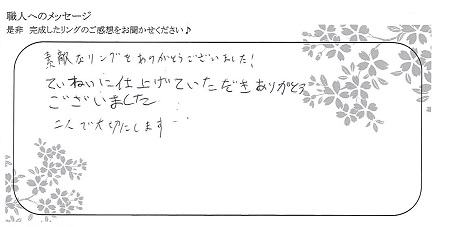 職人へのメッセージ
是非 完成したリングのご感想をお聞かせください♪
素敵なリングをありがとうございました!
ていねいに仕上げていただきありがとう
ございました
二人で大切にします…